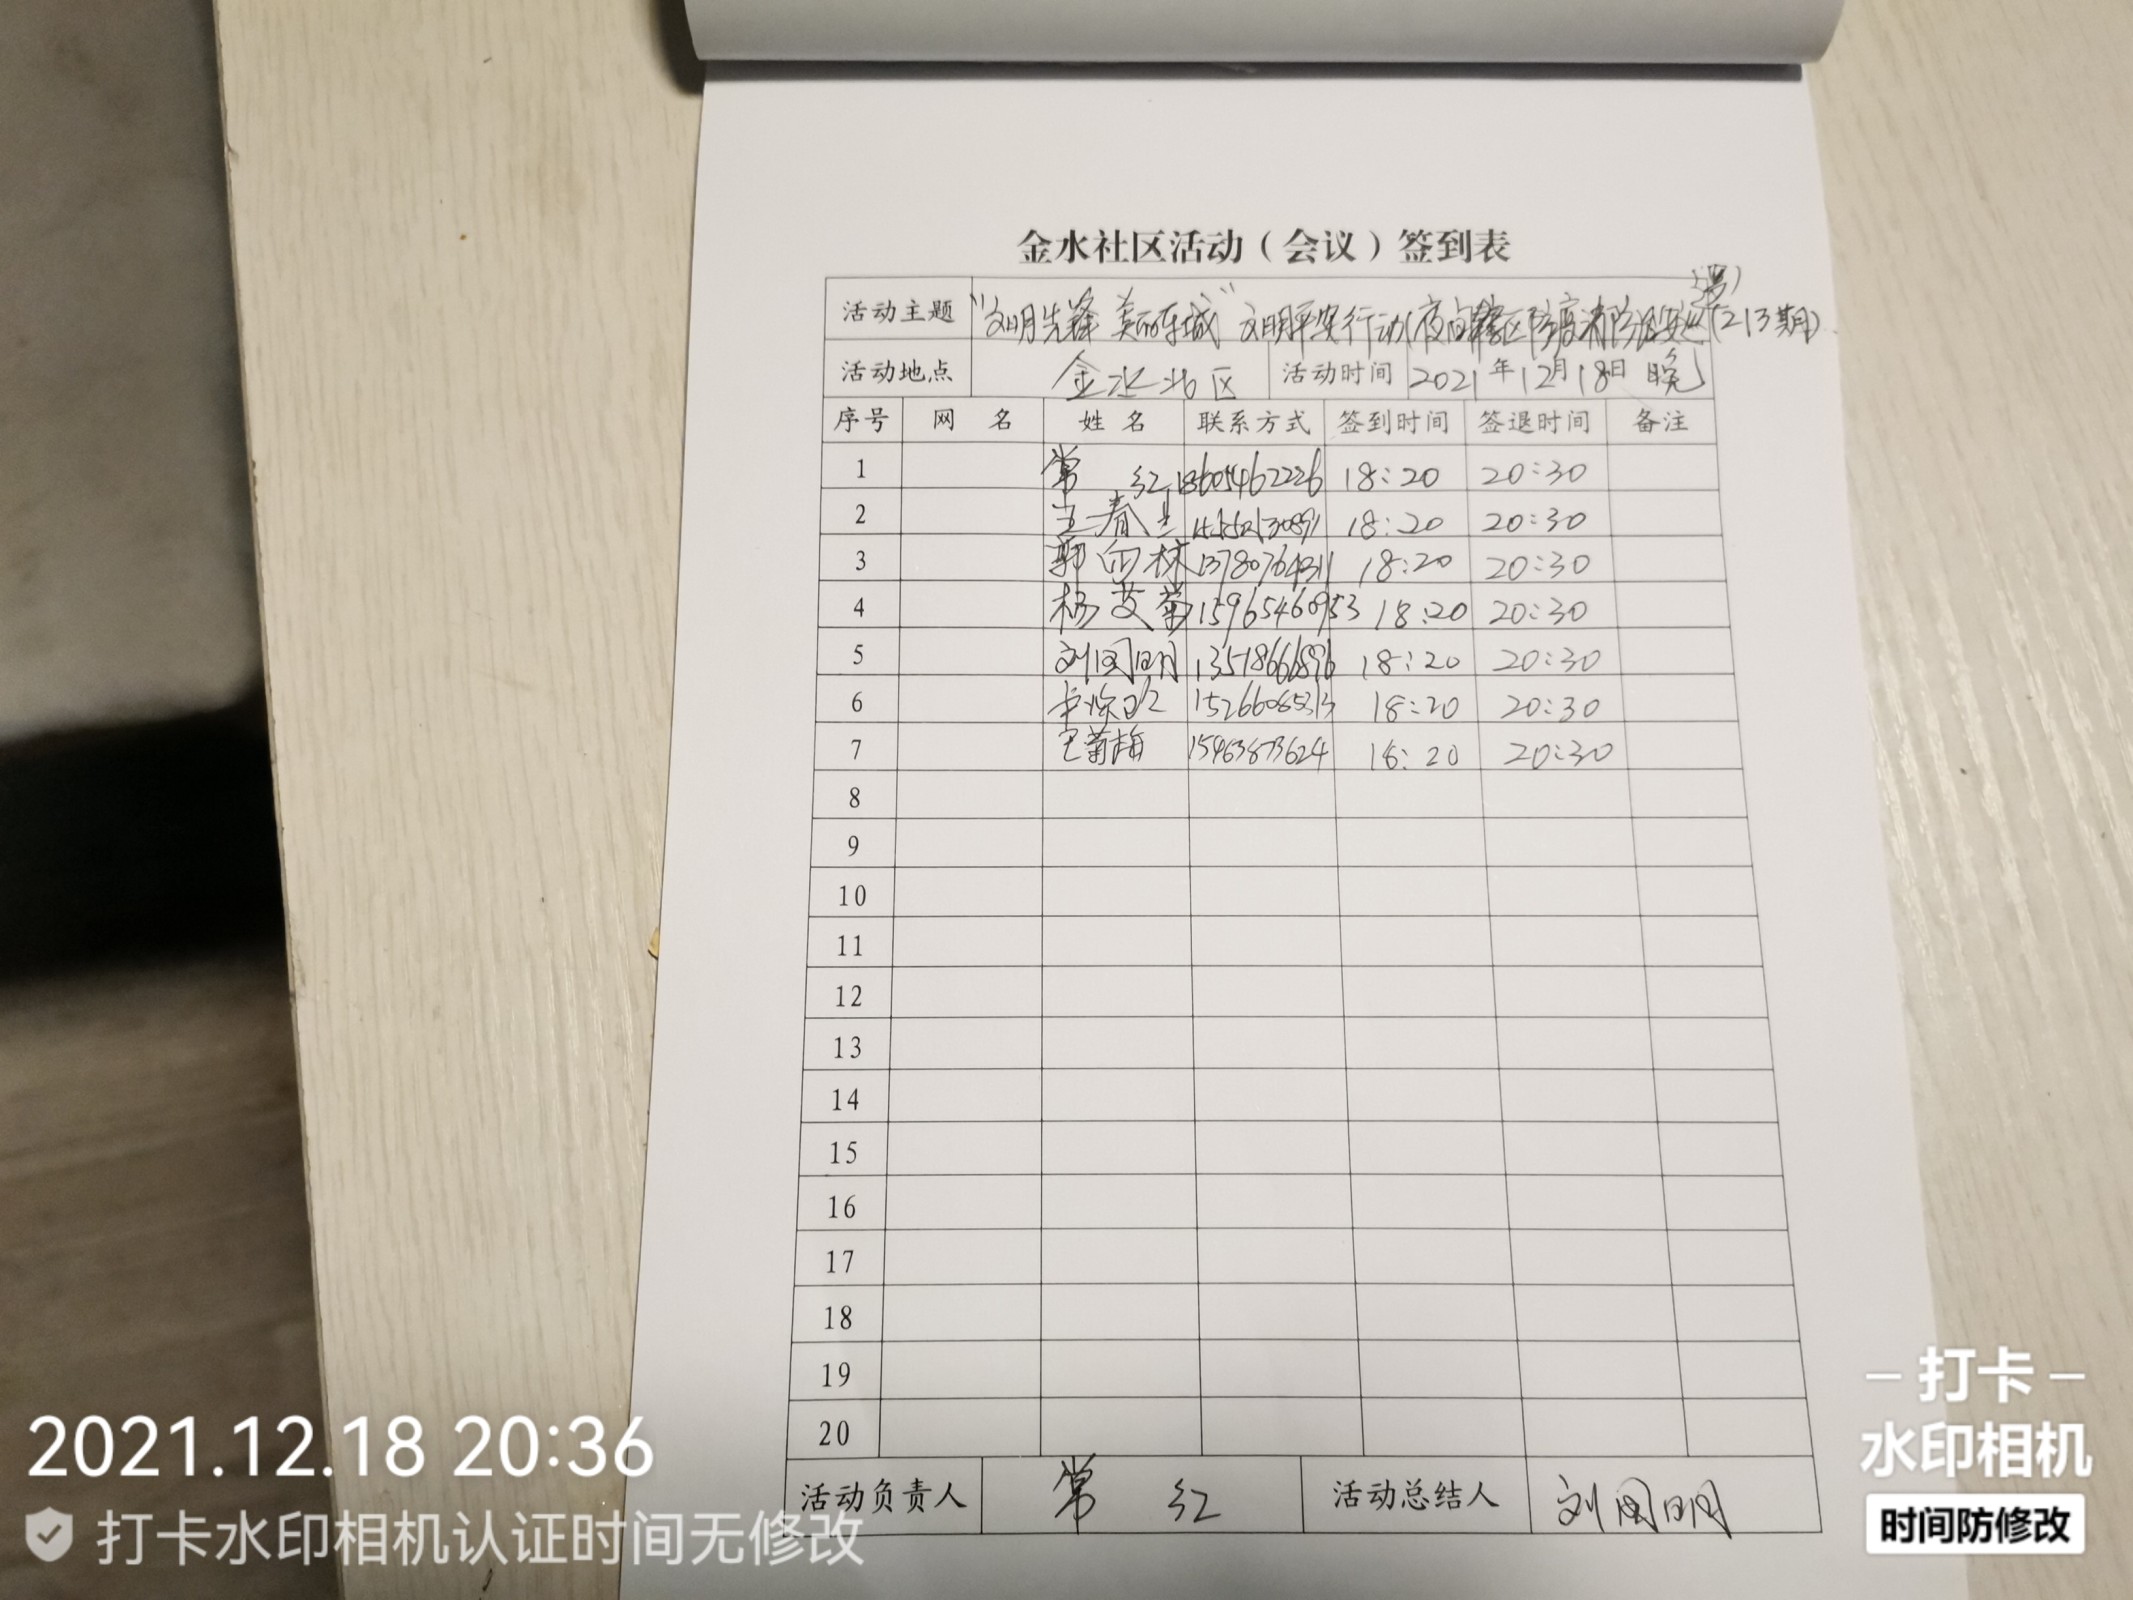 金水社区活动（会议）签到表
活动主题 "文明先锋 美丽东城" 文明平安行动(夜间辖区防疫消防治安巡逻)(213期)
活动地点 金水北区 活动时间 2021年12月18日 晚
序号 网 名 姓 名 联系方式 签到时间 签退时间 备注
1 常 红 18605462226 18:20 20:30
2 18:20 20:30
3 郭向林 13780764311 18:20 20:30
4 杨艾菊 15965460953 18:20 20:30
5 刘国明 13518666896 18:20 20:30
6 18:20 20:30
7 18:20 20:30
8
9
10
11
12
13
14
15
16
17
18
19
20
活动负责人 常 红 活动总结人 刘国明
2021.12.18 20:36
打卡水印相机认证时间无修改
打卡
水印相机
时间防修改